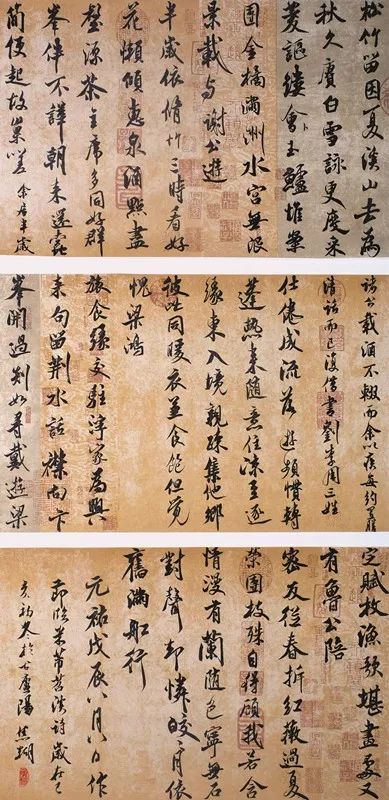 松竹留因夏溪山去為
秋久賡白雪詠更度采
菱謳縷會玉鱸堆案
團金橘滿洲水宮無限
景載与謝公遊
半歲依脩竹三時看好
花懶傾惠泉酒點盡
壑源茶主席多同好群
峯伴不譁朝来還蠹
簡便起故巢嗟 余居半歲
諸公載酒不輟而余以疾每約置膳
清話而已復借書劉李周三姓
仕倦成流落遊頻慣轉
蓬熱来隨意住涼至逐
緣東入境親疎集他鄉
彼此同暖衣並食飽但覺
愧梁鴻
旅食緣交駐浮家為興
来句留荆水話襟向卞
峯開過剡如尋戴遊梁
定賦枚漁歌堪畫處又
有魯公陪
密友從春拆紅薇過夏
榮團枝殊自得顧我若含
情漫有蘭隨色寧無石
對聲却憐皎皎月依
舊滿舡行
元祐戊辰八月八日作
節臨米芾苕溪詩歲在己
亥初冬於